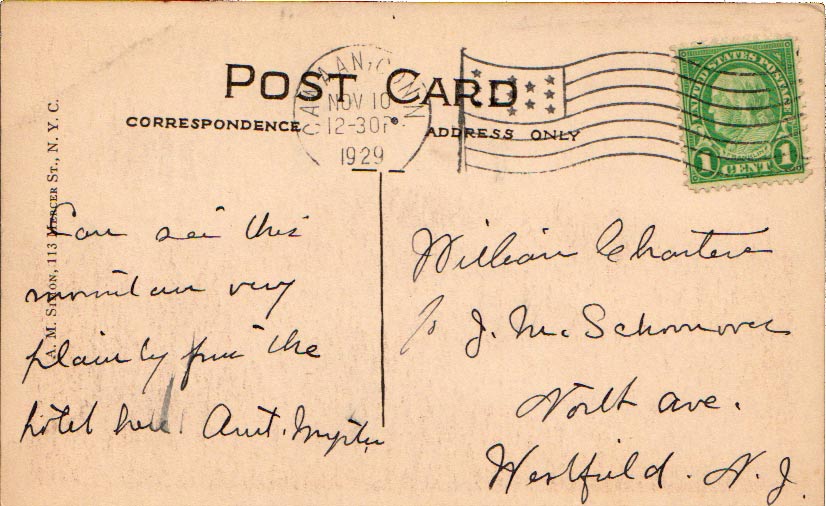 POST CARD
CORRESPONDENCE
ADDRESS ONLY
CANAAN, CONN
NOV 10
12-30P
1929
UNITED STATES POSTAGE
1 CENT 1
A. M. SIMON, 113 MERCER ST., N. Y. C.
Can see this
mountain very
plainly from the
hotel here. Aunt Myrtle
William Charters
J. Mc Schoonover
North Ave.
Westfield. N. J.